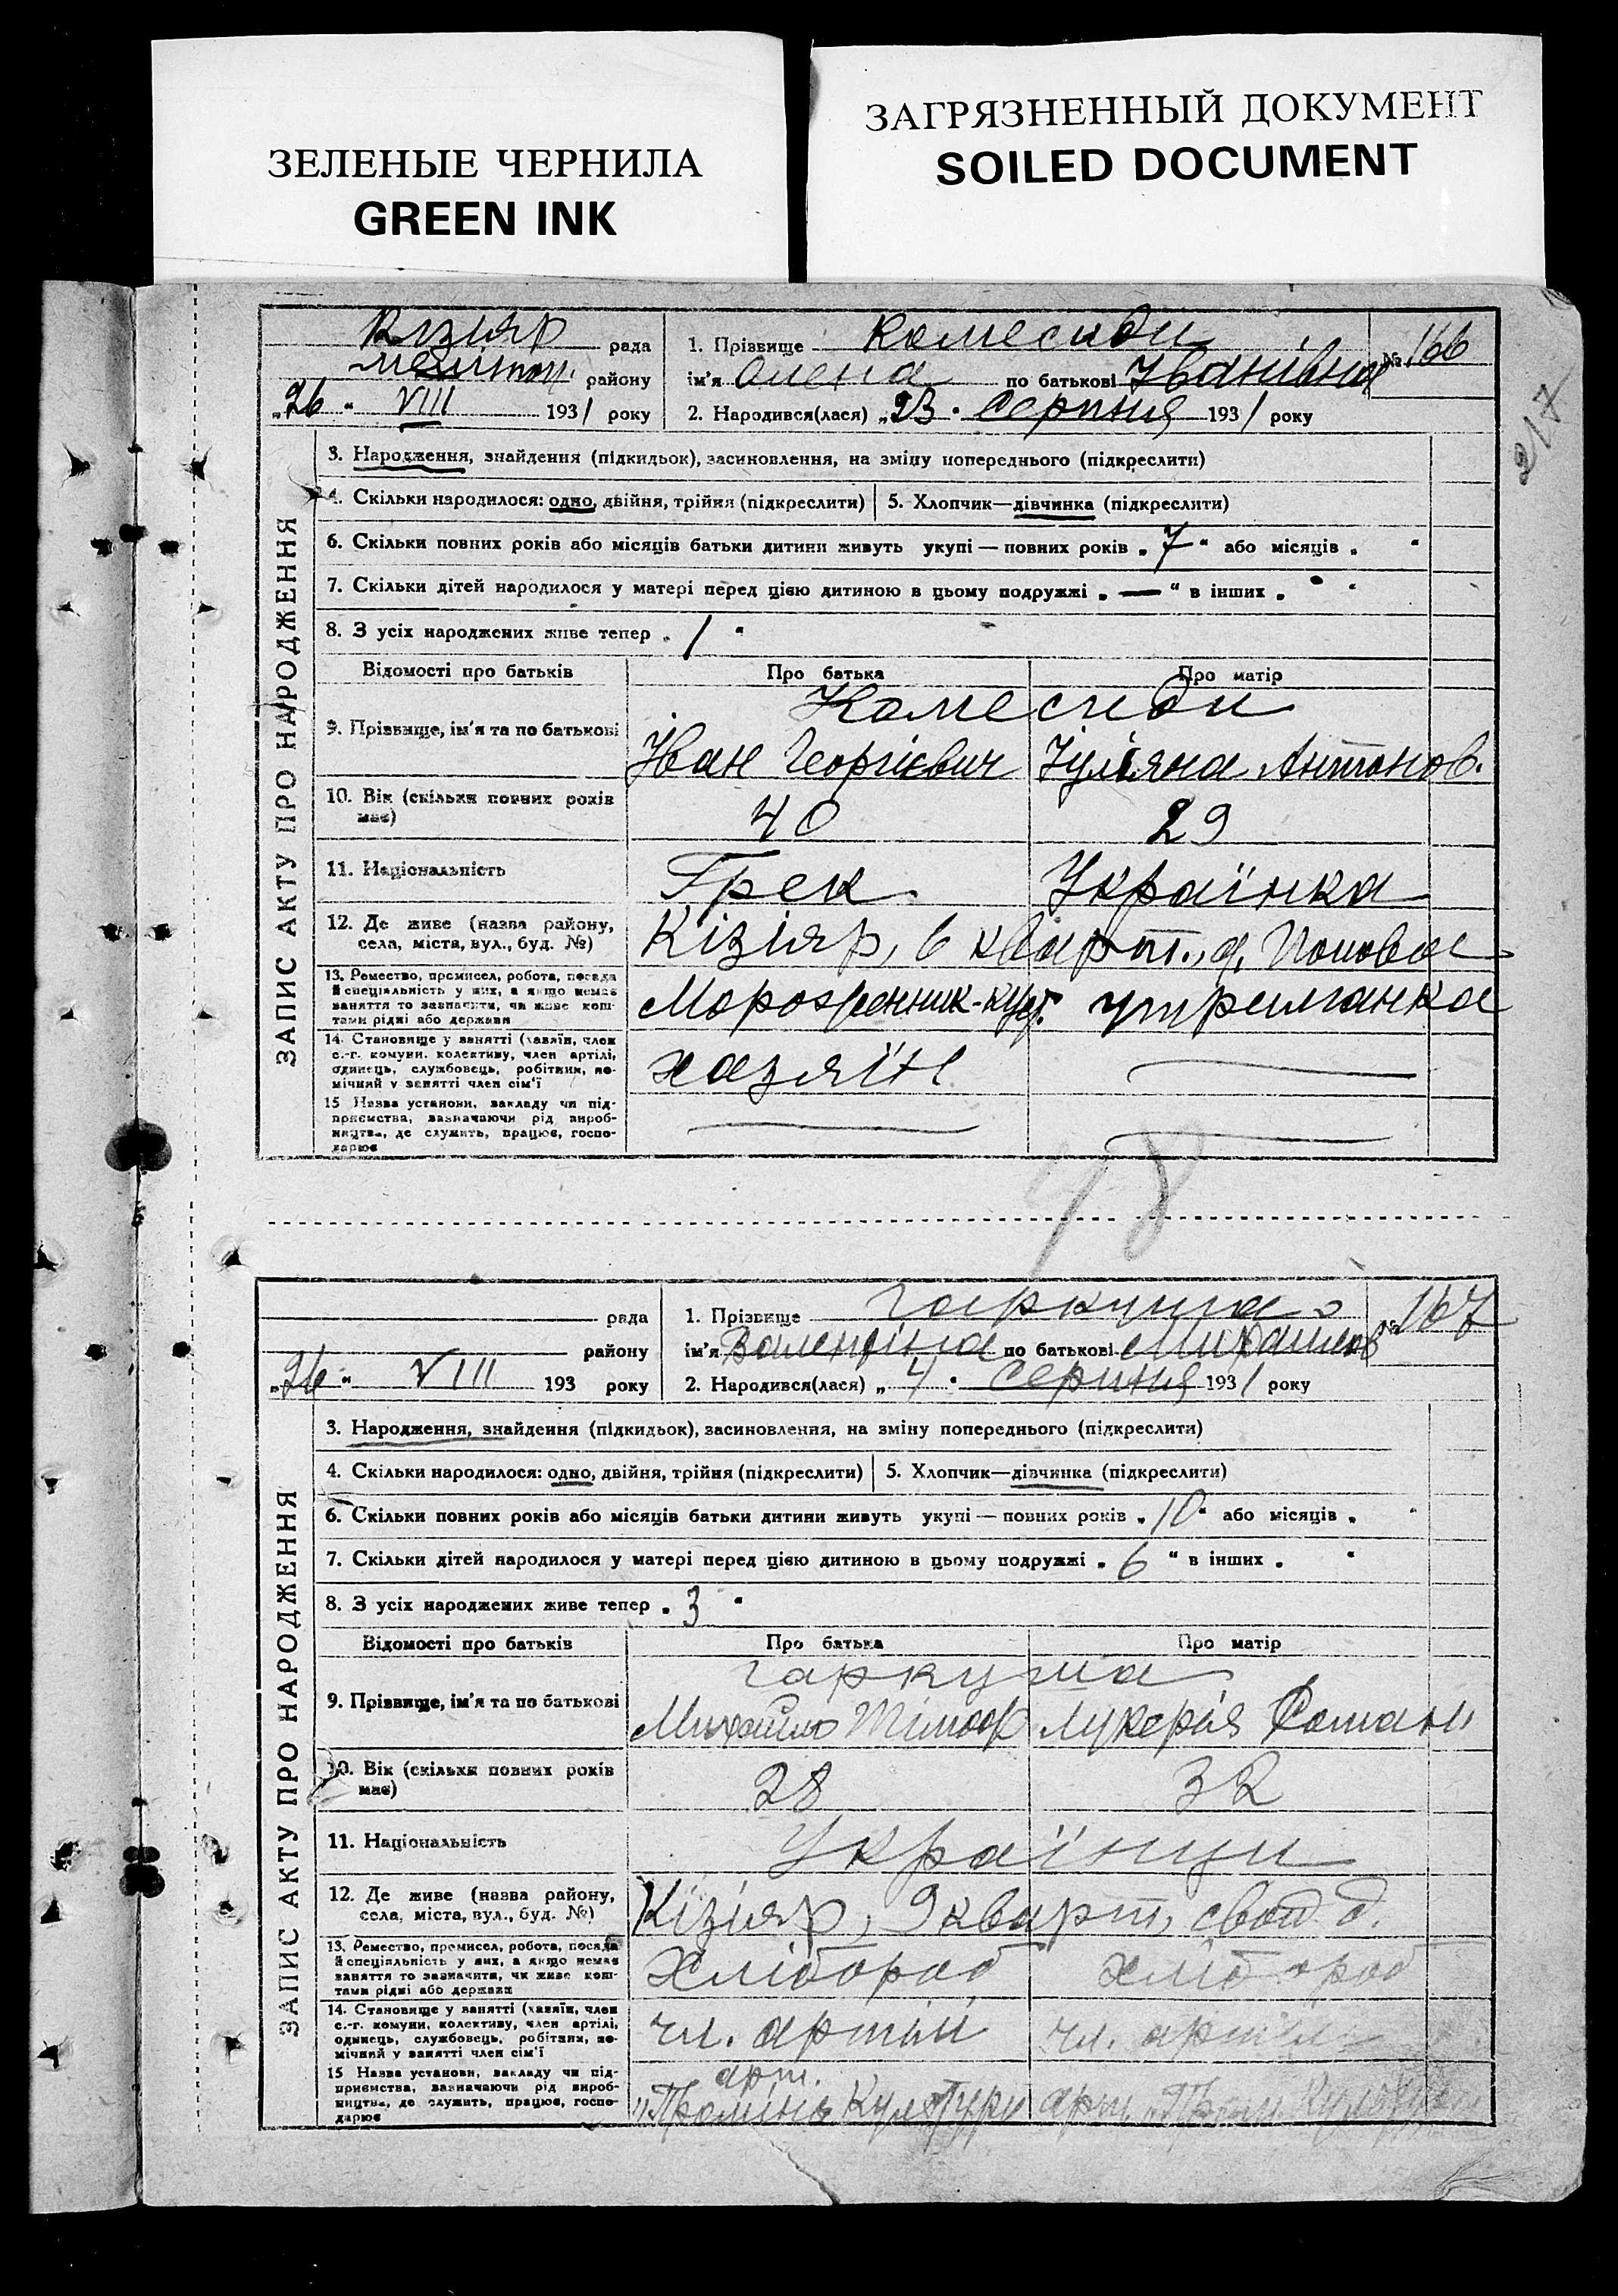 ЗЕЛЕНЫЕ ЧЕРНИЛА
GREEN INK
ЗАГРЯЗНЕННЫЙ ДОКУМЕНТ
SOILED DOCUMENT
217
ЗАПИС АКТУ ПРО НАРОДЖЕННЯ
Кізіяр рада
Мелітоп. району
„26“ VIII 1931 року
1. Прізвище Комесиди
№ 166
ім'я Олена по батькові Іванівна
2. Народився(лася) „23“ Серпня 1931 року
3. Народження, знайдення (підкидьок), засиновлення, на зміну попереднього (підкреслити)
4. Скільки народилося: одно, двійня, трійня (підкреслити) 5. Хлопчик—дівчинка (підкреслити)
6. Скільки повних років або місяців батьки дитини живуть укупі — повних років „7“ або місяців „ “
7. Скільки дітей народилося у матері перед цією дитиною в цьому подружжі „—“ в інших „ “
8. З усіх народжених живе тепер „1“
Відомості про батьків Про батька Про матір
9. Прізвище, ім'я та по батькові
Комесиди
Іван Георгієвич Іуліяна Антонов.
10. Вік (скільки повних років має) 40 29
11. Національність Грек Українка
12. Де живе (назва району, села, міста, вул., буд. №) Кізіяр, 6 кварт., д. Попова
13. Ремество, промисел, робота, посада й спеціяльність у них, а якщо немає заняття то зазначити, чи живе коштами рідні або держави
Мороженник-куст. утриманка
14. Становище у занятті (хазяїн, член с.-г. комуни, колективу, член артілі, одинець, службовець, робітник, помічний у занятті член сім'ї
хазяїн
15 Назва установи, закладу чи підприємства, зазначаючи рід виробництва, де служить, працює, господарює
98
ЗАПИС АКТУ ПРО НАРОДЖЕННЯ
рада
району
„26“ VIII 193 року
1. Прізвище Гаркуша
№ 167
ім'я Валентіна по батькові Михайлов
2. Народився(лася) „4“ Серпня 1931 року
3. Народження, знайдення (підкидьок), засиновлення, на зміну попереднього (підкреслити)
4. Скільки народилося: одно, двійня, трійня (підкреслити) 5. Хлопчик—дівчинка (підкреслити)
6. Скільки повних років або місяців батьки дитини живуть укупі — повних років „10“ або місяців „ “
7. Скільки дітей народилося у матері перед цією дитиною в цьому подружжі „6“ в інших „ “
8. З усіх народжених живе тепер „3“
Відомості про батьків Про батька Про матір
9. Прізвище, ім'я та по батькові
Гаркуша
Михайло Тімоф Лукерія
10. Вік (скільки повних років має) 28 32
11. Національність Українци
12. Де живе (назва району, села, міста, вул., буд. №) Кізіяр, 9 кварт, свой д.
13. Ремество, промисел, робота, посада й спеціяльність у них, а якщо немає заняття то зазначити, чи живе коштами рідні або держави
Хлібороб хлібороб
14. Становище у занятті (хазяїн, член с.-г. комуни, колективу, член артілі, одинець, службовець, робітник, помічний у занятті член сім'ї
чл. артілі чл. артілі
15 Назва установи, закладу чи підприємства, зазначаючи рід виробництва, де служить, працює, господарює
арт.
„Промінь Культури арт. „Пром Культури